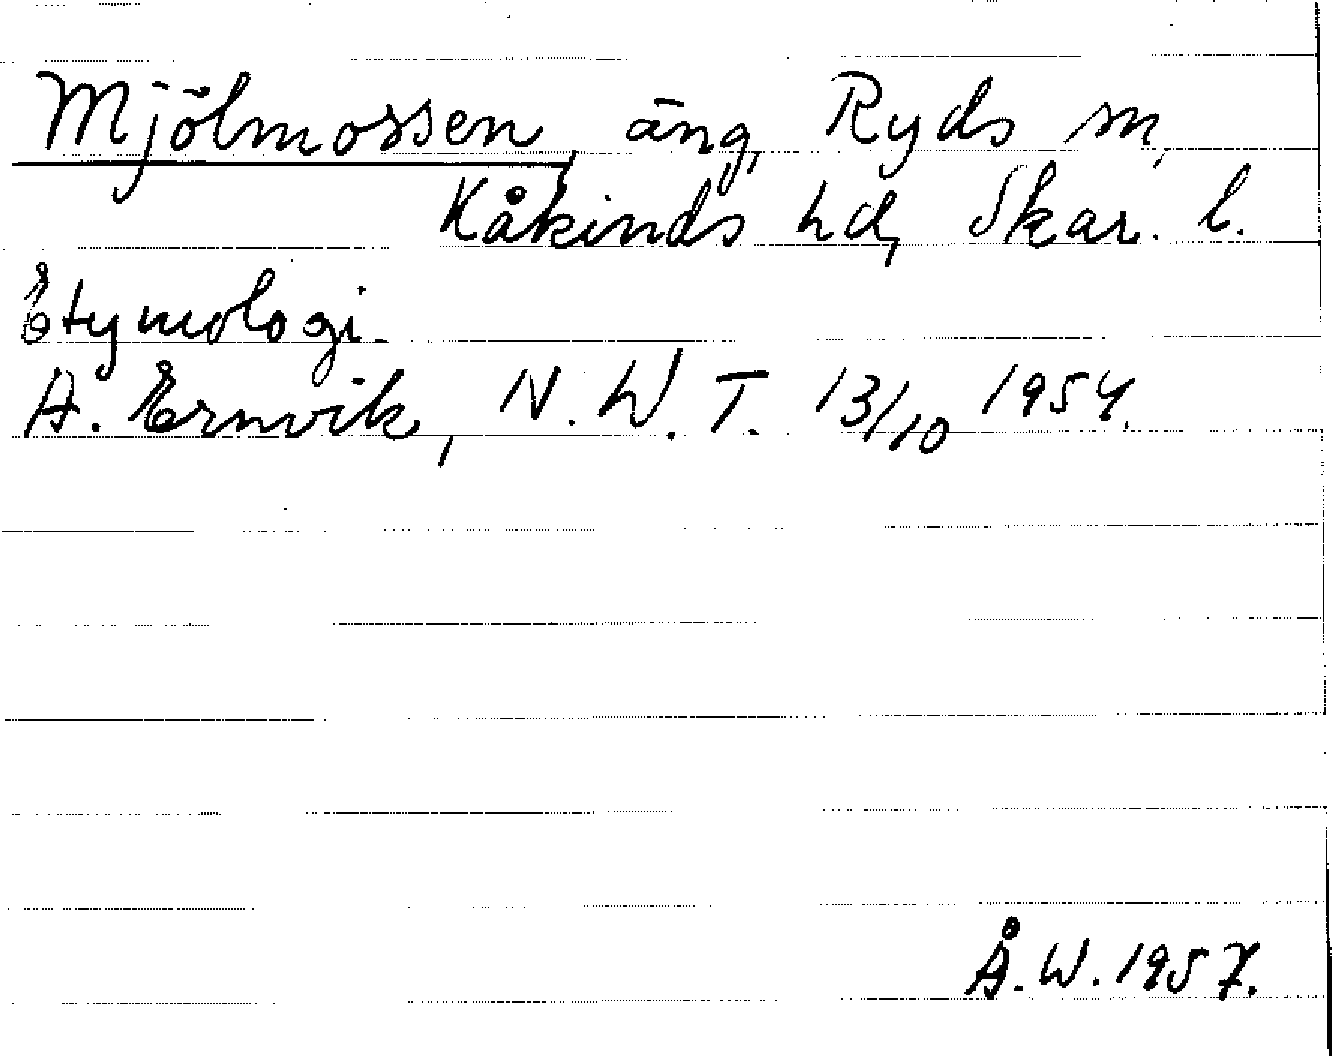 Mjölmossen, äng, Ryds sn,
Kåkinds hd, Skar. l.
Etymologi.
A. Ernvik, N.W.T. 13/10 1954.
Å.W. 1957.